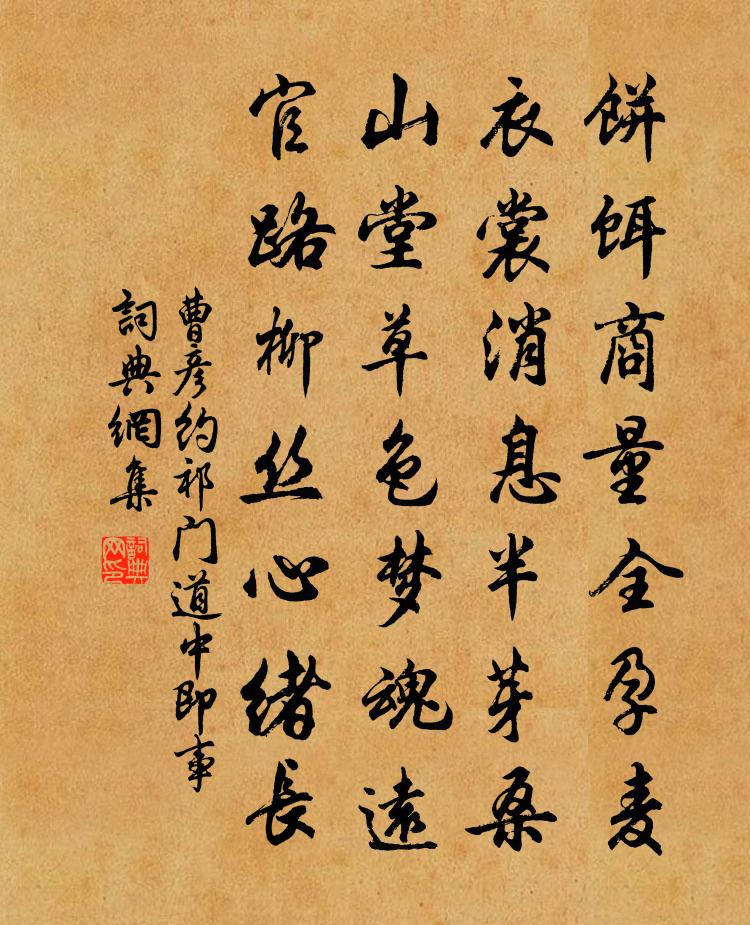 餅餌商量全孕麦
衣裳消息半芽桑
山堂草色梦魂遠
官路柳丝心緒長
曹彦约祁门道中即事
詞典網集
詞典網印